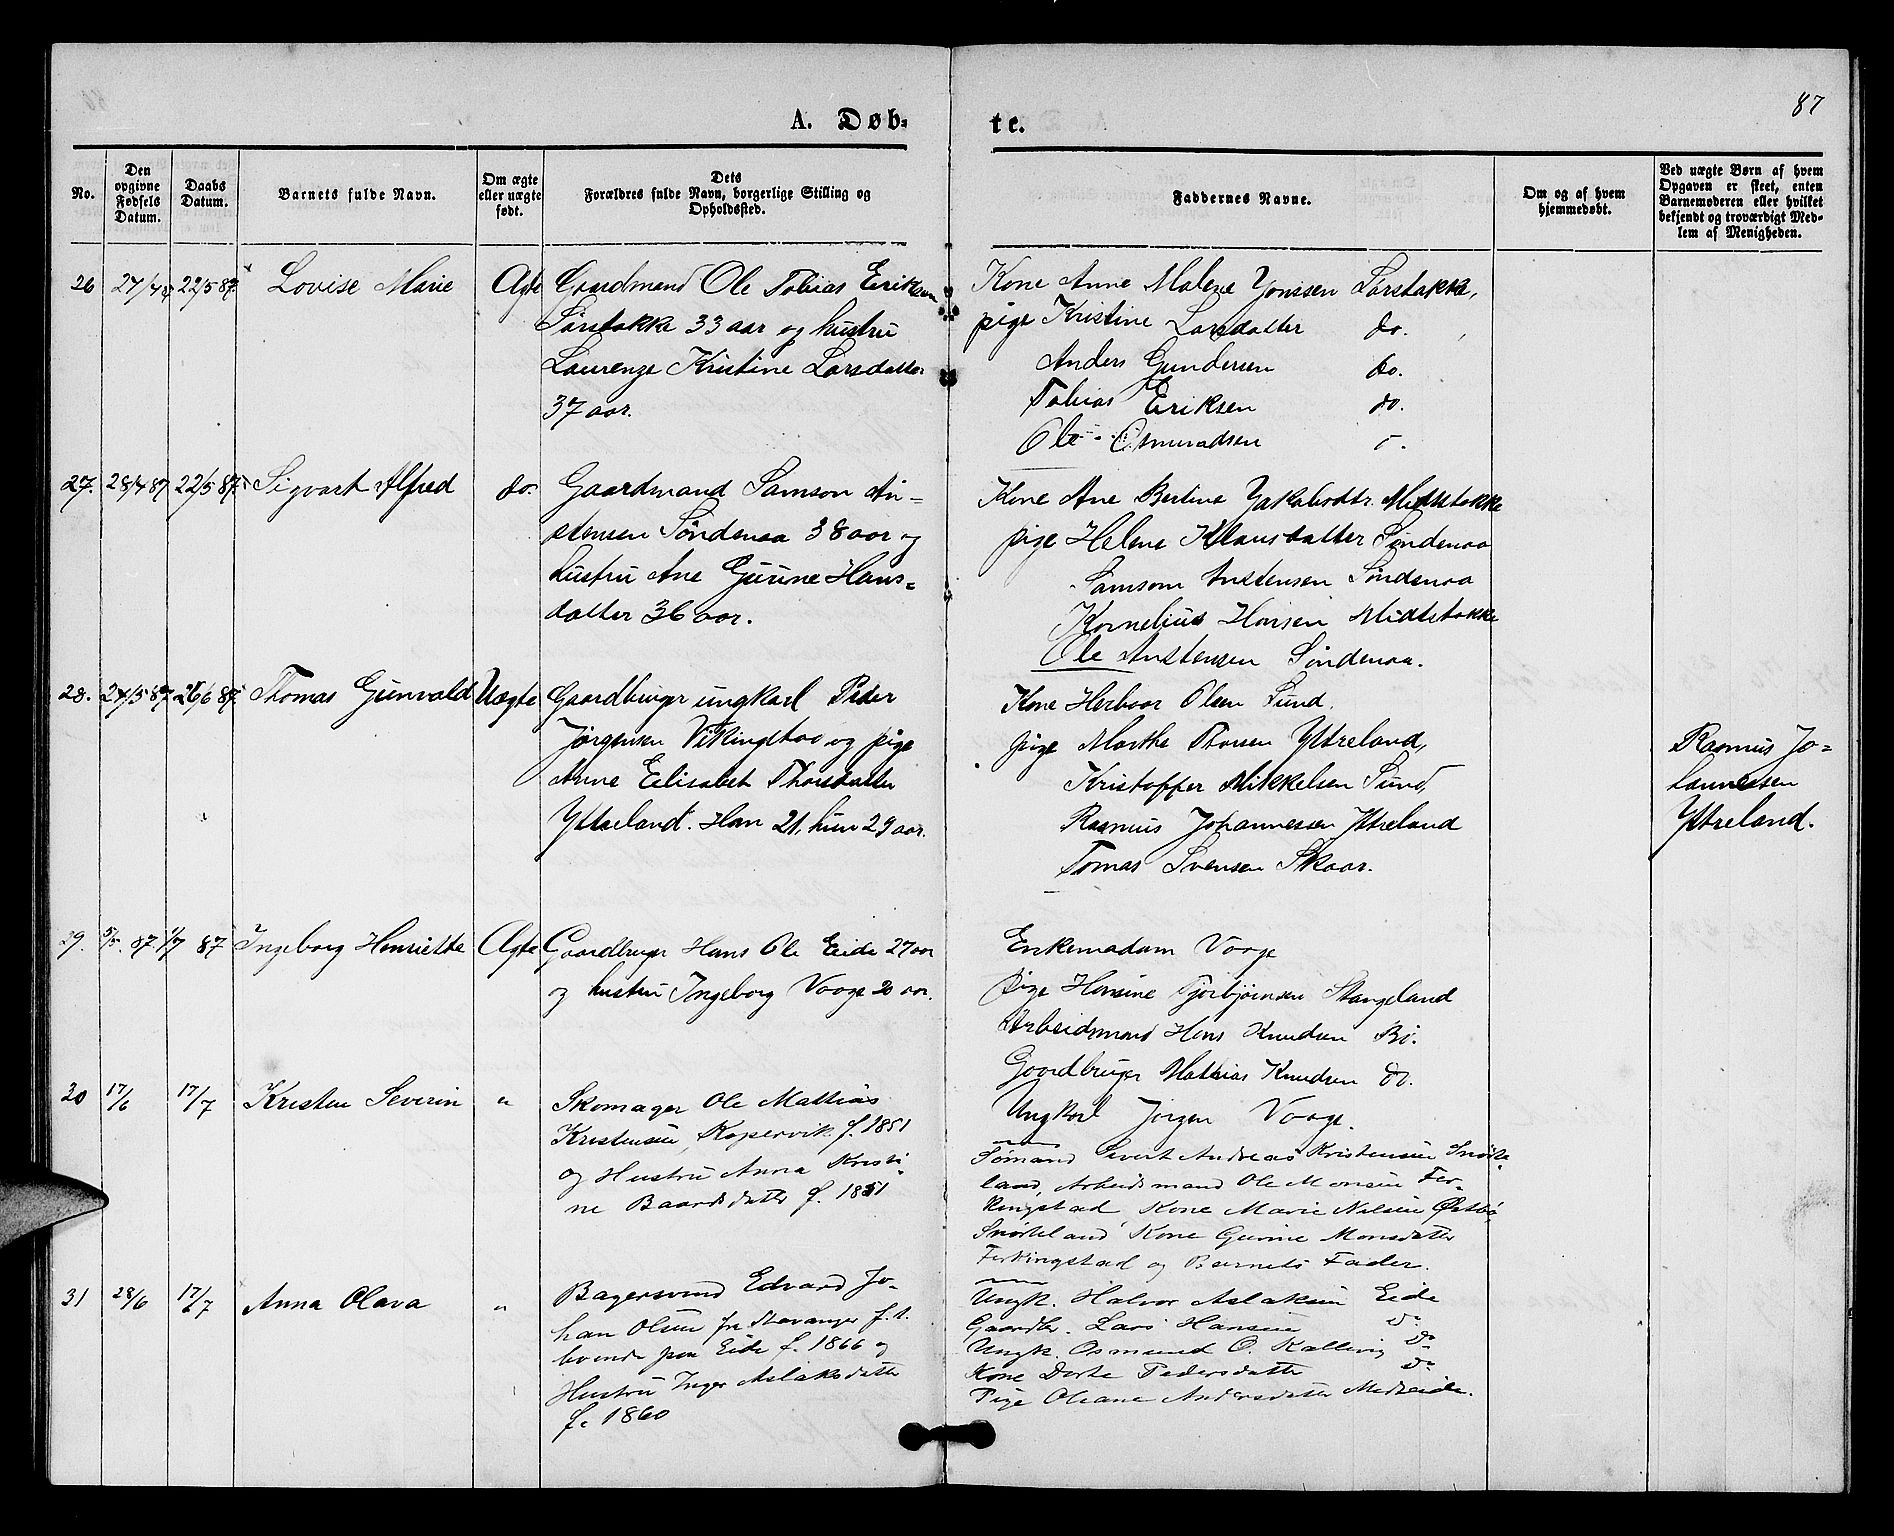 87
A. Døb-
te.
No.
Den opgivne Fødsels Datum.
Daabs Datum.
Barnets fulde Navn.
Om ægte eller uægte født.
Dets Forældres fulde Navn, borgerlige Stilling og Opholdssted.
Faddernes Navne.
Om og af hvem hjemmedøbt.
Ved uægte Børn af hvem Opgaven er skeet, enten Barnemoderen eller hvilket bekjendt og troværdigt Medlem af Menigheden.
26 27/4 87 22/5 87 Lovise Marie Ægte
Gaardmand Ole Tobias Eriksen
Sørstokke 33 aar og hustru
Laurenze Kristine Larsdatter
37 aar.
Kone Anne Malene Jonssen Sørstokke,
pige Kristine Larsdatter do.
Anders Gundersen do.
Tobias Eriksen do.
Ole Osmundsen
27. 28/4 87 22/5 87 Sigvart Alfred do.
Gaardmand Samson An-
stensen Søndenaa 38 aar og
hustru Ane Gurine Hans-
datter 36 aar.
Kone Ane Bertine Jakobsdtr. Midtstokke
pige Helene Klausdatter Søndenaa
Samsom Anstensen Søndenaa
Kornelius Hansen Midtstokke
Ole Anstensen Søndenaa.
28. 24/5 87 26/6 87 Thomas Gunvald Uægte
Gaardbruger ungkarl Peder
Jørgensen Vikingstad og pige
Anne Elisabet Thorsdatter
Ytreland. Han 21, hun 29 aar.
Kone Herboor Olsen Sund.
pige Marthe Thorsen Ytreland,
Kristoffer Mikkelsen Sund,
Rasmus Johannessen Ytreland
Tomas Svensen Skaar.
Rasmus Jo-
hannessen
Ytreland.
29. 5/5. 87 1/7 87 Ingeborg Henriette Ægte
Gaardbruger Hans Ole Eide 27 aar
og hustru Ingeborg Vaage 20 aar.
Enkemadam Vaage
pige Hansine Torbjørnsen Stangeland
Arbeidsmand Hans Knudsen Bø.
Gaardbruger Mathias Knudsen do.
Ungkarl Jørgen Vaage.
30 17/6 17/7 Kristen Severin "
Skomager Ole Mathias
Kristensen, Kopervik f. 1851
og Hustru Anna Kristi-
ne Baardsdatter f. 1851
Sømand Sivert Andreas Kristensen Snørte-
land, Arbeidsmand Ole Monsen Fer-
kingstad Kone Marie Nilsen Østbø
Snørteland Kone Gurine Monsdatter
Ferkingstad og Barnets Fader.
31 28/6 17/7 Anna Olava "
Bagersvend Edvard Jo-
han Olsen fra Stavanger f. t.
boende paa Eide f. 1866 og
Hustru Inger Aslaksdatter
f. 1860
Ungk. Halvor Aslaksen Eide
Gaardbr. Lars Hansen do
Ungk. Osmund O. Kallevig do
Kone Dorte Pedersdatter do
Pige Oleane Andersdatter Medeide.